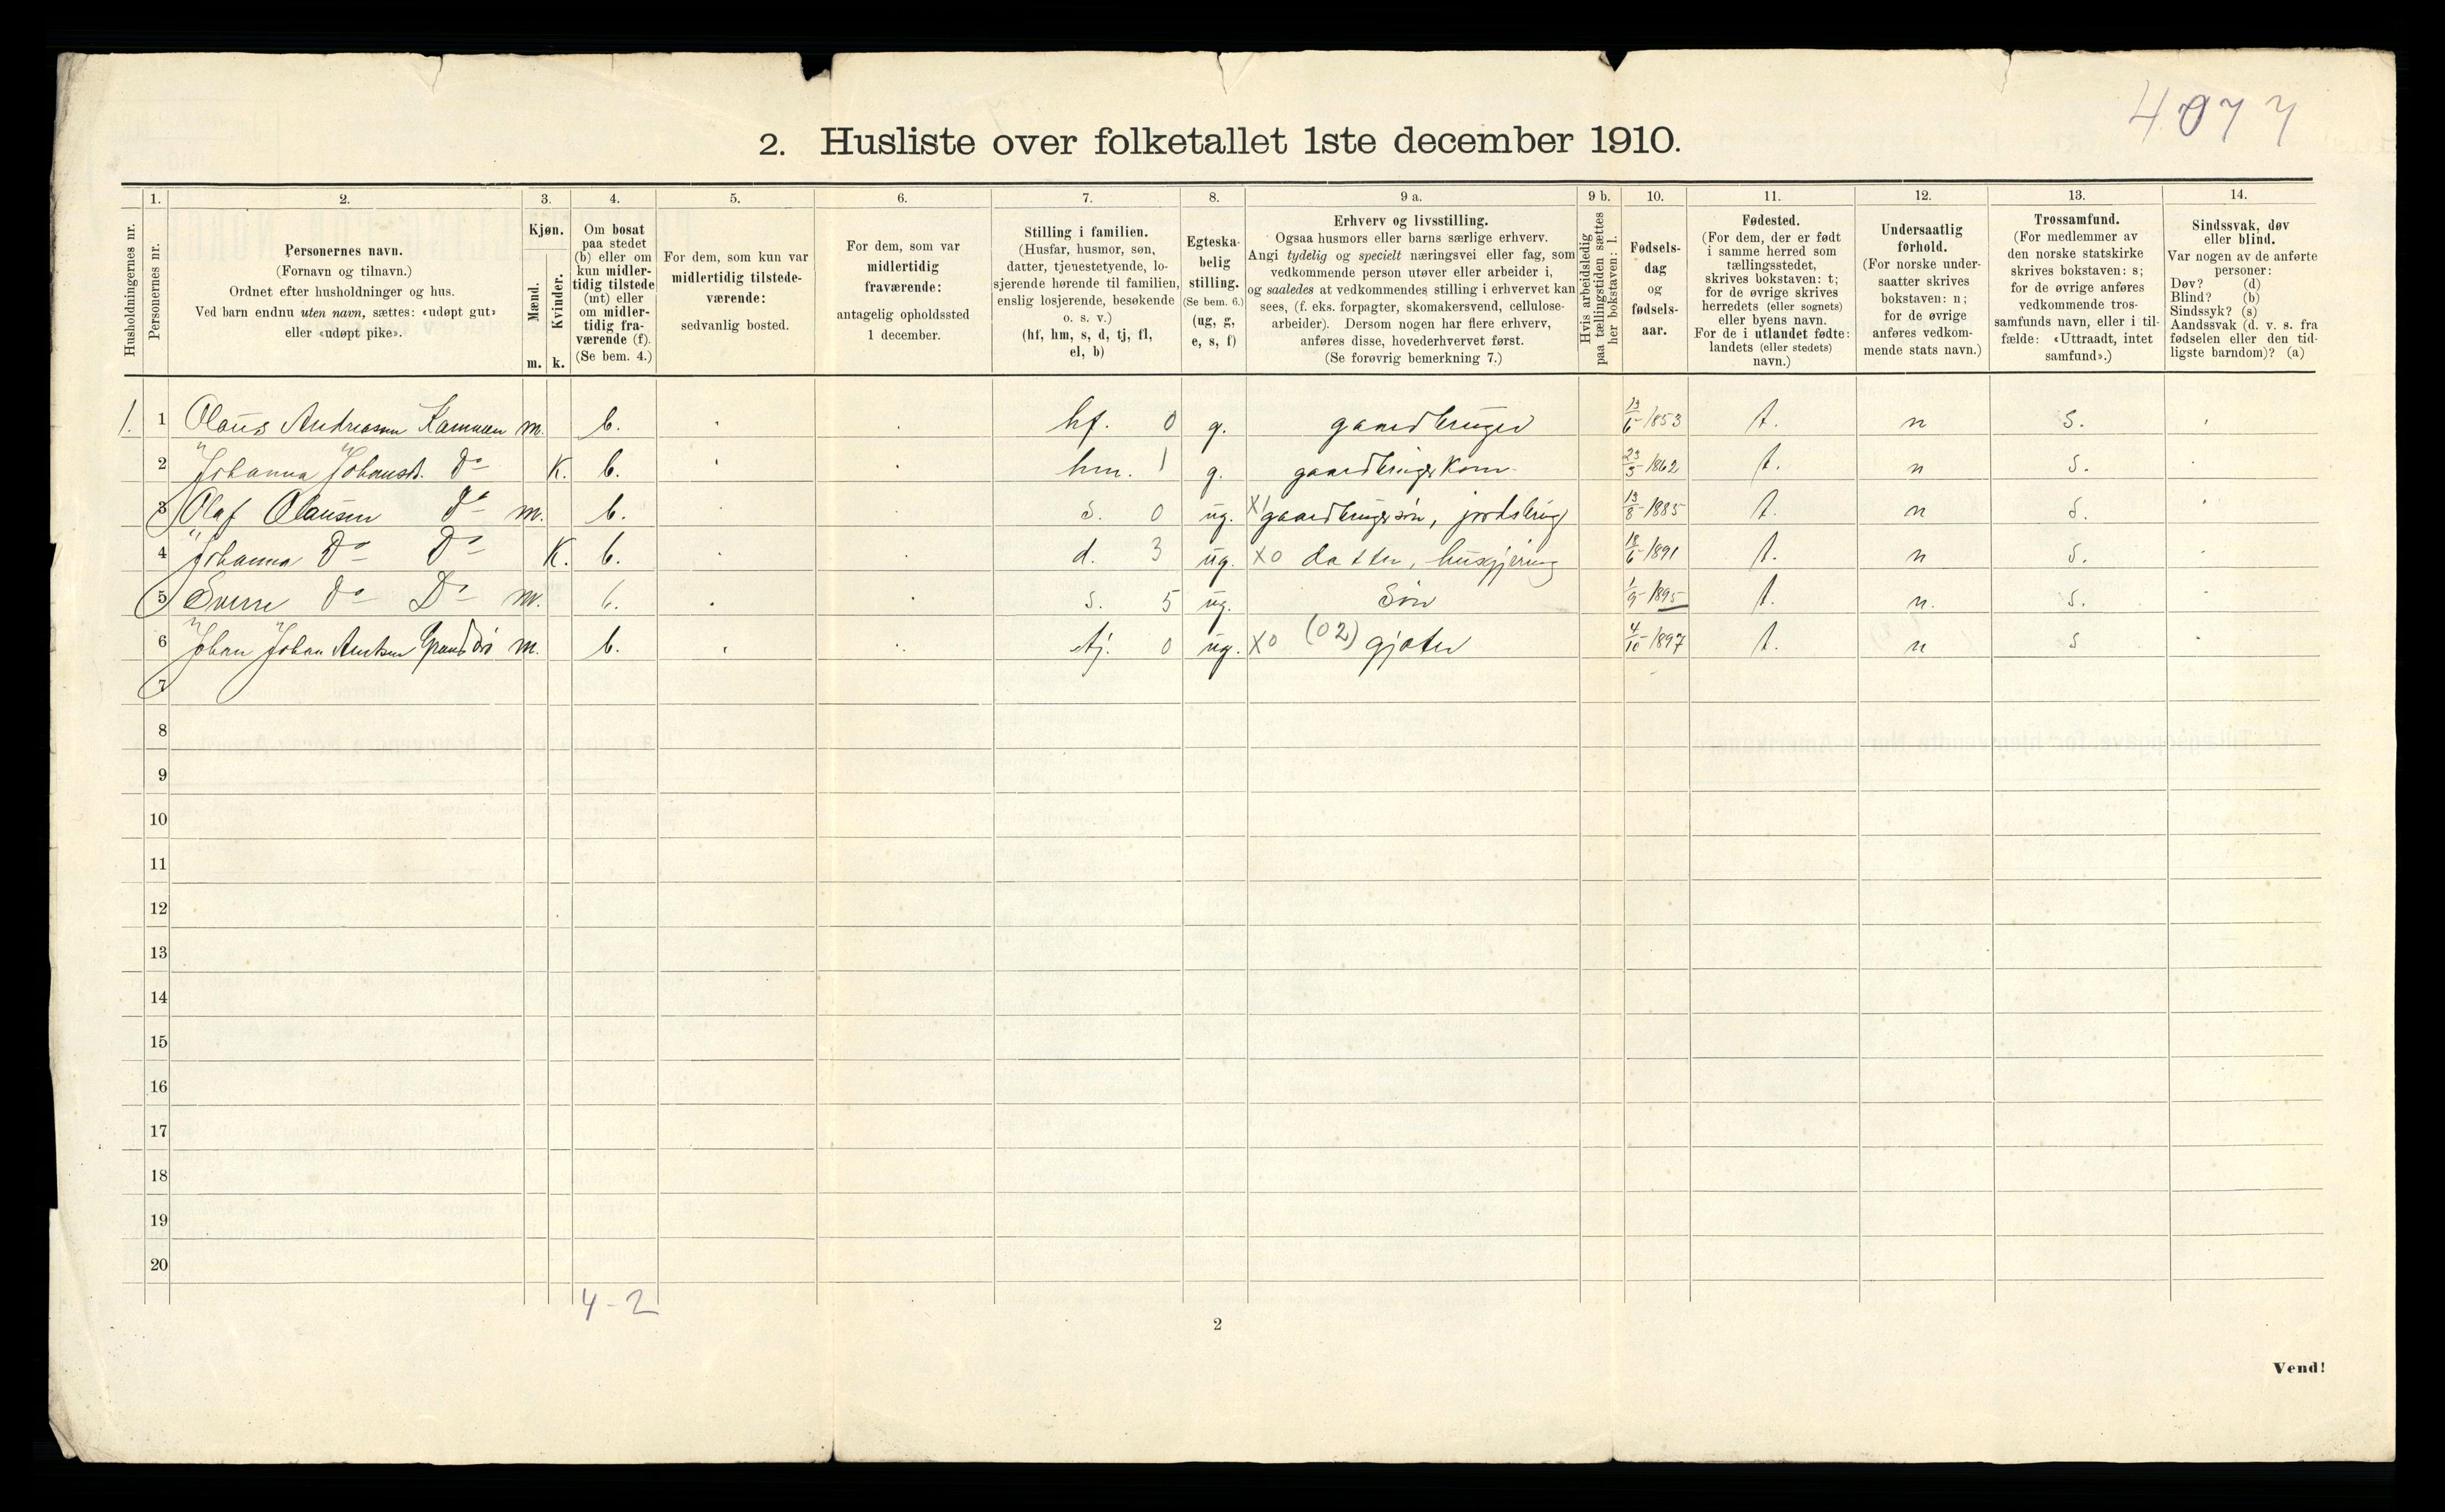 4077
2. Husliste over folketallet 1ste december 1910.
Husholdningernes nr.
1.
Personernes nr.
2.
Personernes navn.
(Fornavn og tilnavn.)
Ordnet efter husholdninger og hus.
Ved barn endnu uten navn, sættes: «udøpt gut»
eller «udøpt pike».
3.
Kjøn.
Mænd.
m.
Kvinder.
k.
4.
Om bosat
paa stedet
(b) eller om
kun midler-
tidig tilstede
(mt) eller
om midler-
tidig fra-
værende (f).
(Se bem. 4.)
5.
For dem, som kun var
midlertidig tilstede-
værende:
sedvanlig bosted.
6.
For dem, som var
midlertidig
fraværende:
antagelig opholdssted
1 december.
7.
Stilling i familien.
(Husfar, husmor, søn,
datter, tjenestetyende, lo-
sjerende hørende til familien,
enslig losjerende, besøkende
o. s. v.)
(hf, hm, s, d, tj, fl,
el, b)
8.
Egteska-
belig
stilling.
(Se bem. 6.)
(ug, g,
e, s, f)
9 a.
Erhverv og livsstilling.
Ogsaa husmors eller barns særlige erhverv.
Angi tydelig og specielt næringsvei eller fag, som
vedkommende person utøver eller arbeider i,
og saaledes at vedkommendes stilling i erhvervet kan
sees, (f. eks. forpagter, skomakersvend, cellulose-
arbeider). Dersom nogen har flere erhverv,
anføres disse, hovederhvervet først.
(Se forøvrig bemerkning 7.)
9 b.
Hvis arbeidsledig
paa tællingstiden sættes
her bokstaven: l.
10.
Fødsels-
dag
og
fødsels-
aar.
11.
Fødested.
(For dem, der er født
i samme herred som
tællingsstedet,
skrives bokstaven: t;
for de øvrige skrives
herredets (eller sognets)
eller byens navn.
For de i utlandet fødte:
landets (eller stedets)
navn.)
12.
Undersaatlig
forhold.
(For norske under-
saatter skrives
bokstaven: n;
for de øvrige
anføres vedkom-
mende stats navn.)
13.
Trossamfund.
(For medlemmer av
den norske statskirke
skrives bokstaven: s;
for de øvrige anføres
vedkommende tros-
samfunds navn, eller i til-
fælde: «Uttraadt, intet
samfund».)
14.
Sindssvak, døv
eller blind.
Var nogen av de anførte
personer:
Døv? (d)
Blind? (b)
Sindssyk? (s)
Aandssvak (d. v. s. fra
fødselen eller den tid-
ligste barndom)? (a)
1. 1 Olaus Andreasen m. b. hf. 0 g. gaardbruger 13/6 1853 t. n s.
2 Johanna Johansd. Do k. b. hm. 1 g. gaardbrugerkone 23/3 1862 t. n s.
3 Olaf Olausen Do m. b. s. 0 ug. x1 gaardbrugersøn, jordsbrug 13/8 1885 t. n s.
4 Johanna Do Do k. b. d. 3 ug. x0 datter, husgjerning 18/6 1891 t. n s.
5 Sverre Do Do m. b. s. 5 ug. Søn 1/9 1895 t. n. s.
6 Johan Johan m. b. tj. 0 ug. x0 (02) gjæter 4/10 1897 t. n s
7
8
9
10
11
12
13
14
15
16
17
18
19
20
4-2
2
Vend!